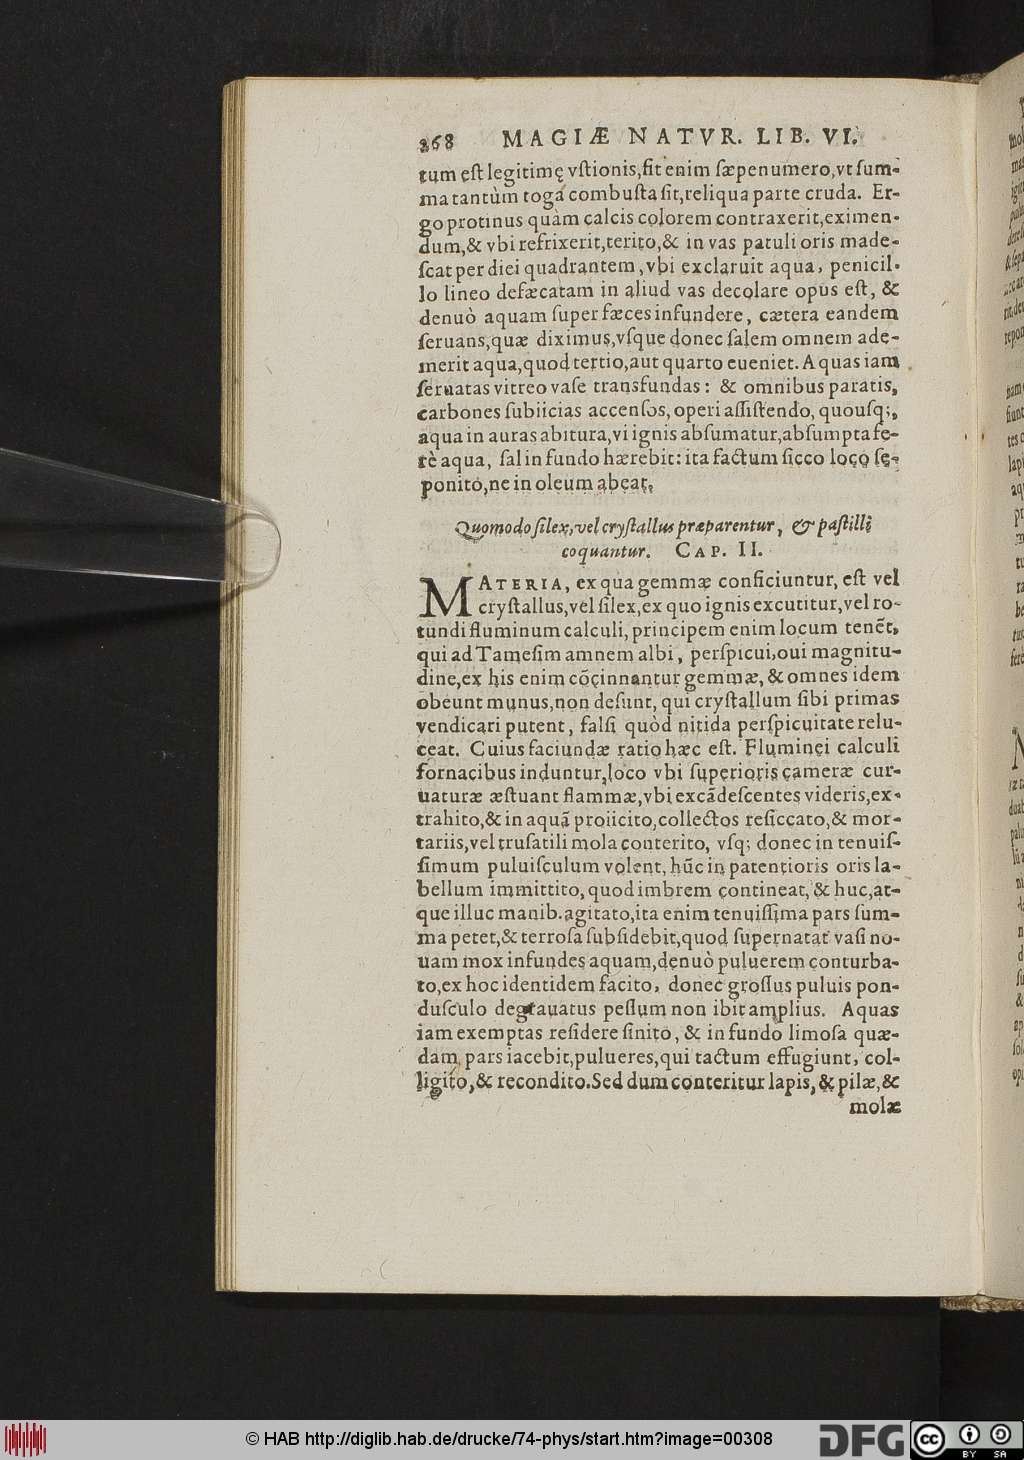 268 MAGIÆ NATVR. LIB. VI.
tum est legitimę vstionis, fit enim sæpenumero, vt sum-
ma tantùm toga combusta sit, reliqua parte cruda. Er-
go protinus quàm calcis colorem contraxerit, eximen-
dum, & vbi refrixerit, terito, & in vas patuli oris made-
scat per diei quadrantem, vbi exclaruit aqua, penicil-
lo lineo defæcatam in aliud vas decolare opus est, &
denuò aquam super fæces infundere, cætera eandem
seruans, quæ diximus, vsque donec salem omnem ade-
merit aqua, quod tertio, aut quarto eueniet. Aquas iam
seruatas vitreo vase transfundas: & omnibus paratis,
carbones subiicias accensos, operi assistendo, quousq;,
aqua in auras abitura, vi ignis absumatur, absumpta fe-
rè aqua, sal in fundo hærebit: ita factum sicco loco se-
ponito, ne in oleum abeat.
Quomodo silex, vel crystallus præparentur, & pastilli
coquantur. CAP. II.
MATERIA, ex qua gemmæ conficiuntur, est vel
crystallus, vel silex, ex quo ignis excutitur, vel ro-
tundi fluminum calculi, principem enim locum tenẽt,
qui ad Tamesim amnem albi, perspicui, oui magnitu-
dine, ex his enim cõcinnantur gemmæ, & omnes idem
obeunt munus, non desunt, qui crystallum sibi primas
vendicari putent, falsi quòd nitida perspicuitate relu-
ceat. Cuius faciundæ ratio hæc est. Fluminei calculi
fornacibus induntur, loco vbi superioris cameræ cur-
uaturæ æstuant flammæ, vbi excãdescentes videris, ex-
trahito, & in aquã proiicito, collectos resiccato, & mor-
tariis, vel trusatili mola conterito, vsq; donec in tenuis-
simum puluisculum volent, hũc in patentioris oris la-
bellum immittito, quod imbrem contineat, & huc, at-
que illuc manib. agitato, ita enim tenuissima pars sum-
ma petet, & terrosa subsidebit, quod supernatat vasi no-
uam mox infundes aquam, denuò puluerem conturba-
to, ex hoc identidem facito, donec grossus puluis pon-
dusculo degrauatus pessum non ibit amplius. Aquas
iam exemptas residere sinito, & in fundo limosa quæ-
dam pars iacebit, pulueres, qui tactum effugiunt, col-
ligito, & recondito. Sed dum conteritur lapis, & pilæ, &
molæ
© HAB http://diglib.hab.de/drucke/74-phys/start.htm?image=00308
DFG
cc BY SA